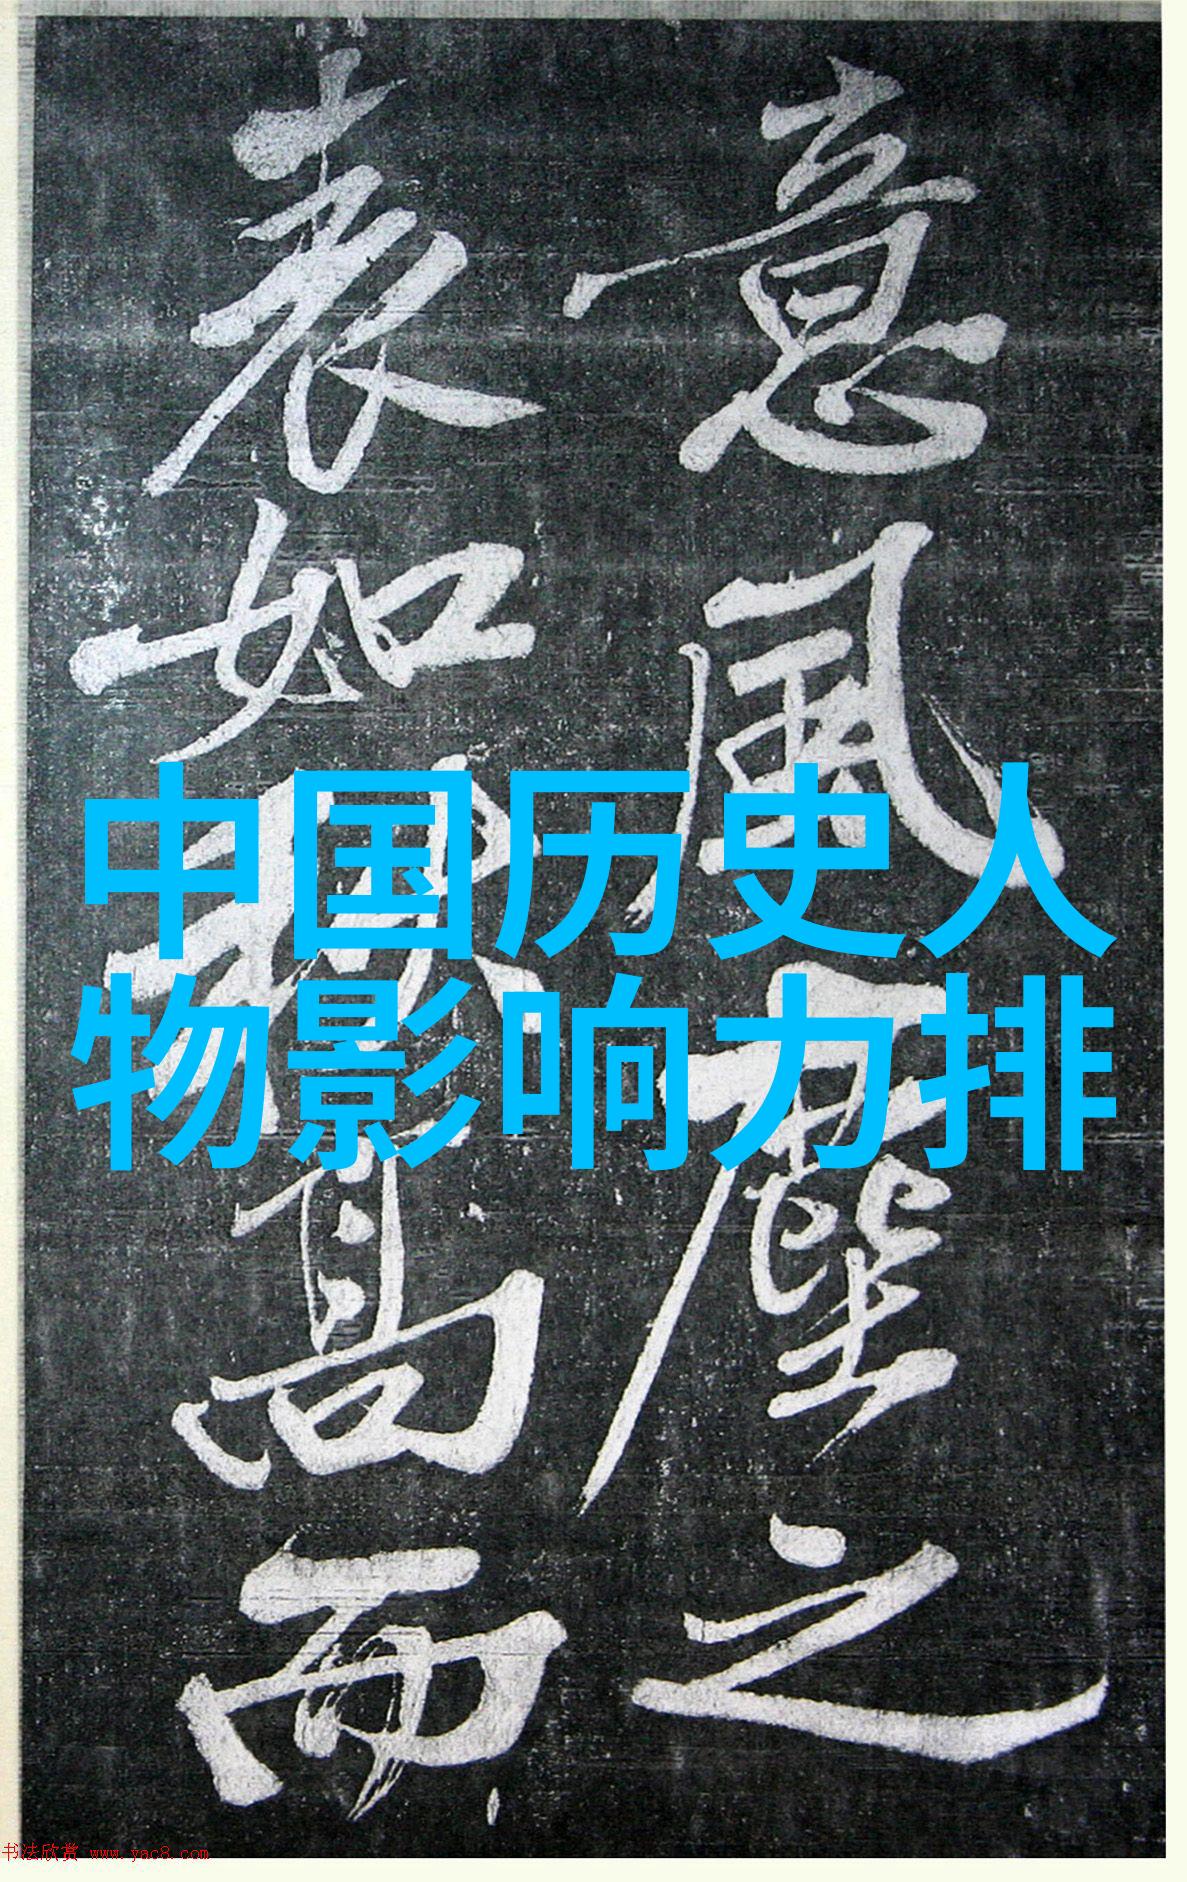 意風塵之
表如秋高而
中国历史人
物影响力排
书法欣赏 www.yac8.com